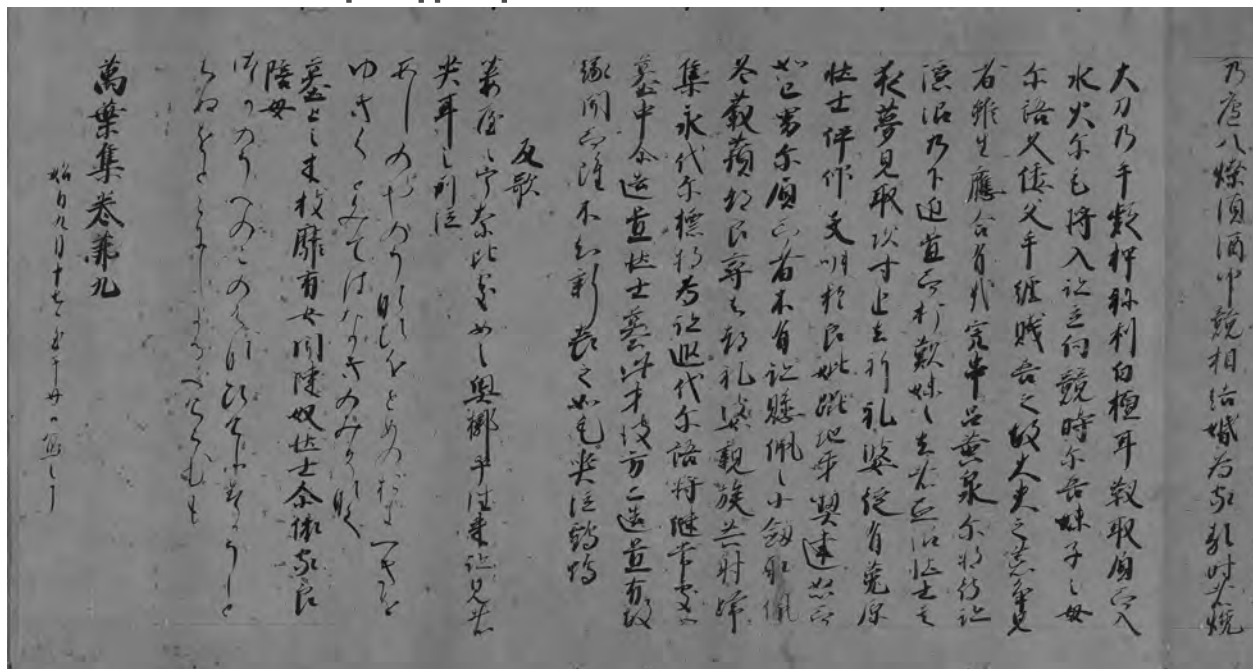 乃廬八燎須酒師競相結婚為家類時者焼
大刀乃手頴押祢利白檀耳靫取負而入
水火尓毛将入跡立向競時尓吾妹子之母
尓語久倭文手纒賎吾之故大夫之荒争見
者雖生應合有哉宍串呂黄泉尓将待跡
隠沼乃下延置而打歎妹之去者血沼壮士其
夜夢見取次寸追去祁礼婆後有菟原
壮士伊仰天叫於良妣地牙喫建怒而
如己男尓負而者不有跡懸佩之小劔取佩
冬蕷都良尋去祁礼婆親族共射歸
集永代尓標将為跡遐代尓語将継常處女
墓中尓造置壮士墓此方彼方二造置有故
縁聞而雖不知新喪之如毛哭泣鶴鴨
反歌
葦屋之宇奈比處女之奥槨乎徃来跡見者
哭耳之所泣
あしのやのうなひをとめのおきつきを
ゆきくとみてはなきのみそなく
墓上之木枝靡有如聞陳奴壮士尓依家良
信母
つかのうへのこのえなひけり
ちぬをとこにしよるへけらしも
萬葉集巻第九